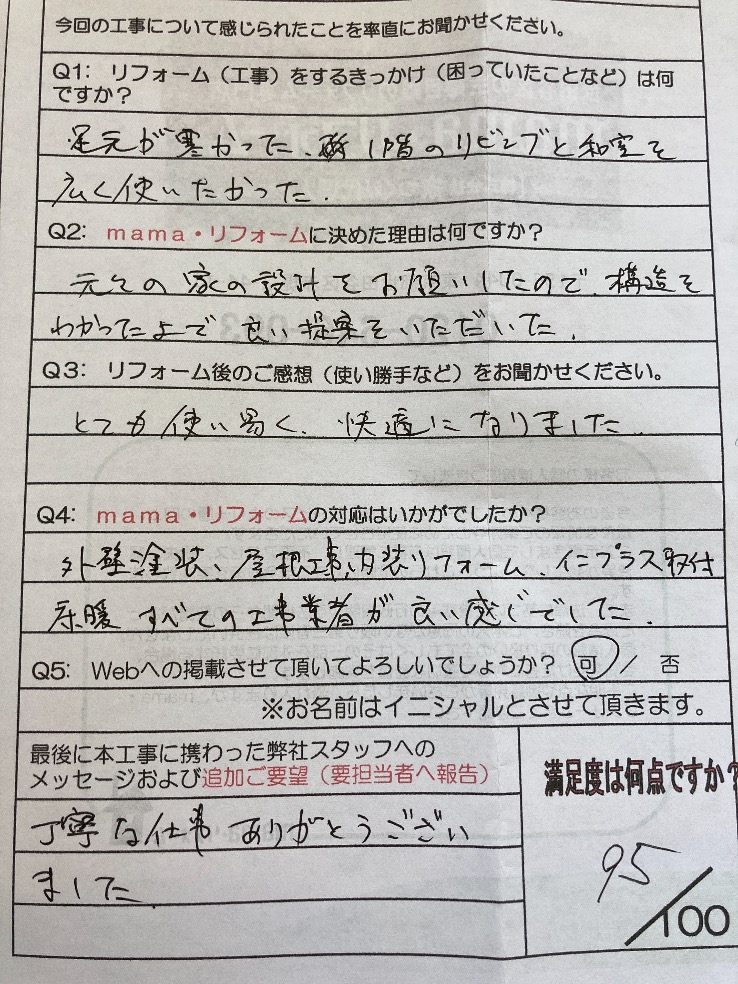 今回の工事について感じられたことを率直にお聞かせください。
Q1: リフォーム（工事）をするきっかけ（困っていたことなど）は何
ですか？
足元が寒かった、 1階のリビングと和室を
広く使いたかった.
Q2: ｍａｍａ・リフォームに決めた理由は何ですか？
元々の家の設計をお願いしたので、構造を
わかった上で良い提案をいただいた.
Q3: リフォーム後のご感想（使い勝手など）をお聞かせください。
とても使い易く、快適になりました.
Q4: ｍａｍａ・リフォームの対応はいかがでしたか？
外壁塗装、屋根工事、内装リフォーム、インプラス取付
床暖 すべての工事業者が良い感じでした.
Q5: Webへの掲載させて頂いてよろしいでしょうか？ 可 / 否
※お名前はイニシャルとさせて頂きます。
最後に本工事に携わった弊社スタッフへの
メッセージおよび追加ご要望（要担当者へ報告）
丁寧な仕事ありがとうござい
ました
満足度は何点ですか？
95/100